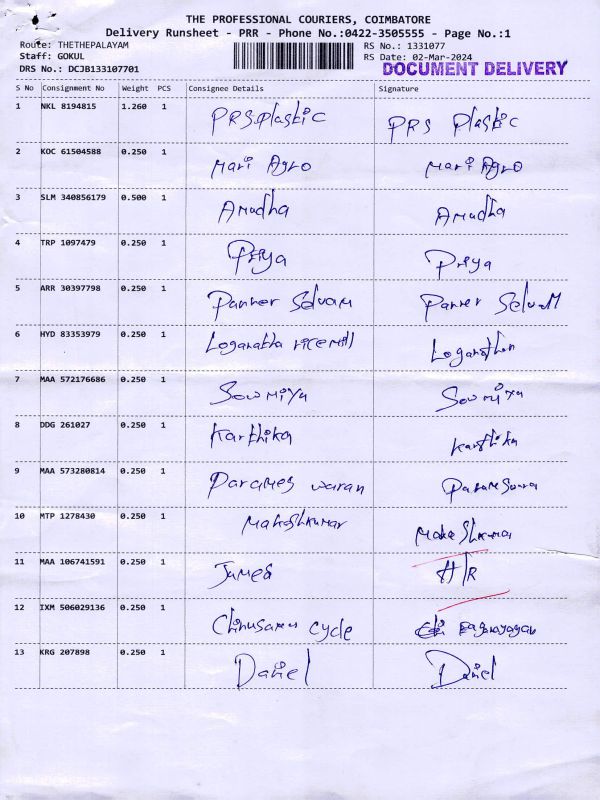 THE PROFESSIONAL COURIERS, COIMBATORE
Delivery Runsheet - PRR - Phone No.:0422-3505555 - Page No.:1
Route: THETHEPALAYAM RS No.: 1331077
Staff: GOKUL RS Date: 02-Mar-2024
DRS No.: DCJB133107701 DOCUMENT DELIVERY
S No Consignment No Weight PCS Consignee Details Signature
1 NKL 8194815 1.260 1 PRS Plastic PRS Plastic
2 KOC 61504588 0.250 1 Mari Agro Mari Agro
3 SLM 340856179 0.500 1 Anudha Anudha
4 TRP 1097479 0.250 1 Priya Priya
5 ARR 30397798 0.250 1 Panner Selvam Panner Selvam
6 HYD 83353979 0.250 1 Loganatha ricemill Loganathan
7 MAA 572176686 0.250 1 Sowmiya Sowmiya
8 DDG 261027 0.250 1 Karthika Karthika
9 MAA 573280814 0.250 1 Parames waran
10 MTP 1278430 0.250 1 Maheshkumar
11 MAA 106741591 0.250 1 James H/R
12 IXM 506029136 0.250 1 cycle
13 KRG 207898 0.250 1 Daniel Daniel